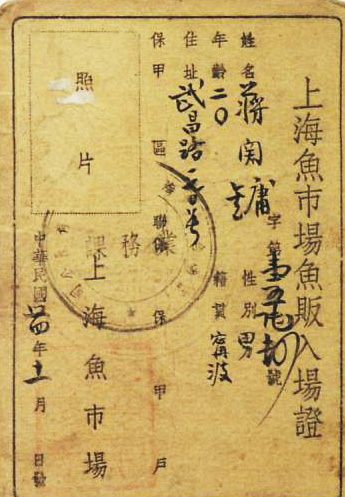 上海魚市場魚販入場證
字第 號
姓名 蔣 關 性別 男
年齡 二〇 籍貫 甯波
住址 武昌路
保甲 區 聯保 保 甲 戶
照片
業務課
上海魚市場
中華民國 年十一月 日發